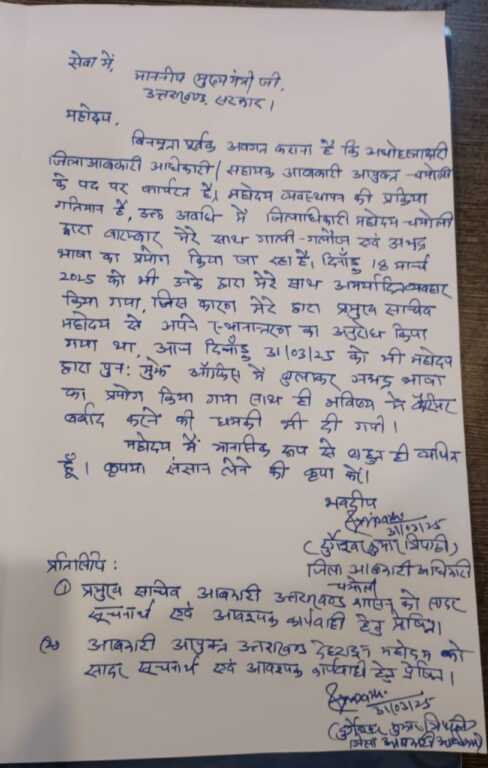 सेवा में,
माननीय मुख्यमंत्री जी,
उत्तराखण्ड सरकार।
महोदय,
विनम्रता पूर्वक अवगत कराना है कि अधोहस्ताक्षरी
जिला आबकारी अधिकारी/सहायक आबकारी आयुक्त-चमोली
के पद पर कार्यरत है, महोदय व्यवस्थापन की प्रक्रिया
गतिमान है, उक्त अवधि में जिलाधिकारी महोदय-चमोली
द्वारा बारम्बार मेरे साथ गाली-गलौज एवं अभद्र
भाषा का प्रयोग किया जा रहा है, दिनाँक 18 मार्च
2025 को भी उनके द्वारा मेरे साथ अमर्यादित व्यवहार
किया गया, जिस कारण मेरे द्वारा प्रमुख सचिव
महोदय से अपने स्थानान्तरण का अनुरोध किया
गया था, आज दिनाँक 31/03/25 को भी महोदय
द्वारा पुनः मुझे ऑफिस में बुलाकर अभद्र भाषा
का प्रयोग किया गया साथ ही भविष्य में कैरियर
बर्बाद करने की धमकी भी दी गयी।
महोदय मैं मानसिक रूप से बहुत ही व्यथित
हूँ। कृपया संज्ञान लेने की कृपा करें।
भवदीय
31/03/25
(दुर्गेश्वर कुमार त्रिपाठी)
जिला आबकारी अधिकारी
चमोली
प्रतिलिपि:
① प्रमुख सचिव आबकारी उत्तराखण्ड शासन को सादर
सूचनार्थ एवं आवश्यक कार्यवाही हेतु प्रेषित।
② आबकारी आयुक्त उत्तराखण्ड देहरादून महोदय को
सादर सूचनार्थ एवं आवश्यक कार्यवाही हेतु प्रेषित।
31/03/25
(दुर्गेश्वर कुमार त्रिपाठी)
जिला आबकारी अधिकारी